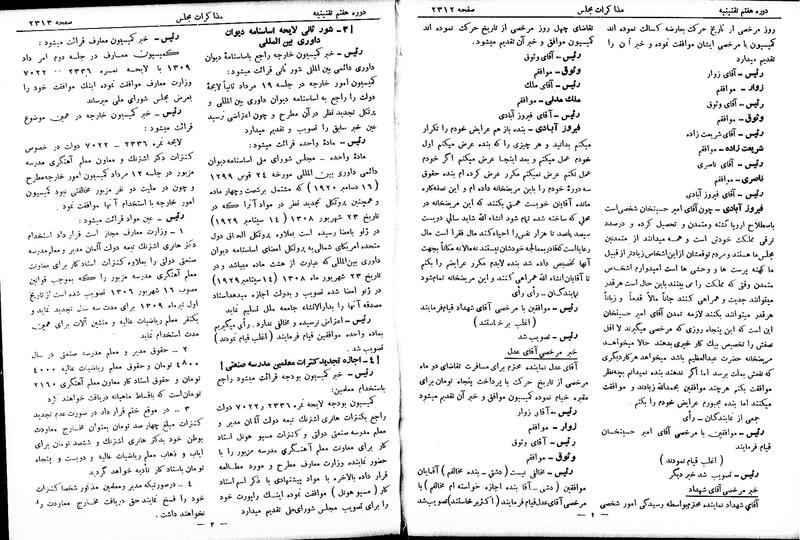 دوره هفتم تقنینیه
مذاکرات مجلس
صفحه ۲۳۱۲
روز مرخصی از تاریخ حرکت بعارضه کسالت نموده اند
کمیسیون با مرخصی ایشان موافقت نموده و خبر آن را
تقدیم میدارد
رئیس ـ آقای زوار
زوار ـ موافقم
رئیس ـ آقای وثوق
وثوق ـ موافقم
رئیس ـ آقای شریعت زاده
شریعت زاده ـ موافقم
رئیس ـ آقای ناصری
ناصری ـ موافقم
رئیس ـ آقای فیروز آبادی
فیروز آبادی ـ چون آقای امیر حسینخان شخصی است
باصطلاح اروپا گشته ومتمدن و تحصیل کرده و درصدد
ترقی مملکت خودش است و همه میدانند از متمدنین
مجلس‌ها هستند و مردم توقعشان از این اشخاص زیادتر از قبیل
ما کهنه پرست ها و وحشی ها است امیدوارم اشخاص
متمدن وقتی که مملکت را می بینند باین حال است هرقدر
میتوانند جدیت و همراهی کنند جاناً مالاً قدماً و زباناً
هرقدر میتوانند بکنند لازمه تمدن آقای امیر حسینخان
این است که این پنجاه روزی که مرخصی میگیرند لا اقل
نصفش را تخصیص بیك کار خیری بدهند حالا میخواهد
مریضخانه حضرت عبدالعظیم باشد میخواهد هر کار دیگری
که نفعش بملت برسد اما اگر ندهند بنده نمیدانم بچه نظر
موافقت بکنم هرچند موافقین بحمدالله زیادند و موافقت
میکنند اما بنده مجبورم عرایض خودم را بکنم
جمعی از نمایندگان ـ رأی
رئیس ـ موافقین با مرخصی آقای امیر حسینخان
قیام فرمایند
(اغلب قیام نمودند)
رئیس ـ تصویب شد خبر دیگر
خبر مرخصی آقای شهداد
آقای شهداد نماینده محترم بواسطه رسیدگی امور شخصی
تقاضای چهل روز مرخصی از تاریخ حرکت نموده اند
کمیسیون موافق و خبر آن تقدیم میشود.
رئیس ـ آقای وثوق
وثوق ـ موافقم
رئیس ـ آقای ملك
ملك مدنی ـ موافقم
رئیس ـ آقای فیروز آبادی
فیروز آبادی ـ بنده باز هم عرایض خودم را تکرار
میکنم بدانید و هر چیزی را که بنده عرض میکنم اول
خودم عمل میکنم و بعد اینجا عرض میکنم اگر خودم
عمل نکنم عرض نمیکنم مکرر عرض کرده ام بنده حقوق
سه دورهٔ خودم را باین مریضخانه داده ام و این نصفه کاره
مانده آقایان خوبست همتی بکنند که این مریضخانه در
محلی که ساخته شده تمام شود انشاء الله شاید سالی دویست
سیصد پانصد تا هزار نفس را احیاء کنند مال فقرا است مال
رعایا است که قادر بمعالجه خودشان نیستند نه مالاً نه مکاناً بجهت
آنها تخصیص داده شده بنده لابدم مکرر عرایضم را بکنم
تا آقایان انشاء الله همراهی کنند و این مریضخانه تمام شود
نمایندگان ـ رأی رأی
رئیس ـ موافقین با مرخصی آقای شهداد قیام فرمایند
(اغلب برخاستند)
رئیس ـ تصویب شد
خبر مرخصی آقای عدل
آقای عدل نماینده محترم برای مسافرت تقاضای دو ماه
مرخصی از تاریخ حرکت با پرداخت پنجاه تومان برای
مقبره خیام نموده کمیسیون موافق و خبر آن تقدیم میشود
رئیس ـ آقای زوار
زوار ـ موافقم
رئیس ـ آقای وثوق
وثوق ـ موافقم
رئیس ـ مخالفی نیست (دشتی ـ بنده مخالفم) آقایان
موافقین (دشتی ـ آقا بنده اجازه خواسته ام مخالفم) با
مرخصی آقای عدل قیام فرمایند (اکثر برخاستند) تصویب شد
ـ ۲ ـ
دوره هفتم تقنینیه
مذاکرات مجلس
صفحه ۲۳۱۳
[۳ ـ شور ثانی لایحه اساسنامه دیوان
داوری بین المللی]
رئیس ـ خبر کمیسیون خارجه راجع باساسنامهٔ دیوان
داوری دائمی بین المللی شور ثانی قرائت میشود:
کمیسیون امور خارجه در جلسه ۱۹ مرداد ثانیاً لایحهٔ
دولت را راجع به اساسنامه دیوان داوری بین المللی و
پرتکل تجدید نظر در آن مطرح و چون اعتراضی نرسید
عین خبر سابق را تصویب و تقدیم میدارد
رئیس ـ مادهٔ واحده قرائت میشود:
مادهٔ واحده ـ مجلس شورای ملی اساسنامه دیوان
دائمی داوری بین المللی مورخه ۲۴ قوس ۱۲۹۹
(۱۶ دسامبر ۱۹۲۰) که مشتمل برشصت وچهار ماده
و همچنین پرتکل تجدید نظر در مواد آنرا که در
تاریخ ۲۳ شهریور ۱۳۰۸ (۱۴ سپتامبر ۱۹۲۹)
در ژنو بامضا رسیده است بعلاوه پرتکل الحاق دول
متحده امریکای شمالی به پروتکل امضای اساسنامه دیوان
داوری بین المللی که عبارت از هشت ماده میباشد و در
تاریخ ۲۳ شهریور ماه ۱۳۰۸ (۱۴ سپتامبر ۱۹۲۹)
در ژنو امضا شده تصویب و بدولت اجازه میدهد اسناد
مصدقه آنها را بدارالانشاء جامعه ملل تسلیم نماید
رئیس ـ اعتراضی نرسیده و مخالفی ندارد. رأی میگیریم
بماده واحده موافقین قیام فرمایند (اغلب قیام نمودند)
تصویب شد.
[۴ ـ اجازه تجدید کنترات معلمین مدرسه صنعتی]
رئیس ـ خبر کمیسیون بودجه قرائت میشود راجع
باستخدام معلمین:
کمیسیون بودجه لایحه نمره ۲۳۳۶ و ۷۰۲۲ دولت
راجع بکنترات هانری اشترنك تبعه دولت آلمان مدیر و
معلم مدرسه صنعتی دولتی و کنترات مسیو هونل استاد
کار برای معاونت معلم آهنگری مدرسه مزبور را با
حضور نماینده وزارت معارف مطرح و مورد مطالعه
قرار داده بالاخره با مواد پیشنهادی با ذکر اسم استاد
کار (مسیو هونل) موافقت نموده اینك راپورت خود
را برای تصویب مجلس شورای ملی تقدیم میدارد
رئیس ـ خبر کمیسیون معارف قرائت میشود:
کمیسیون معارف در جلسه دوم امر داد
۱۳۰۹ با لایحه نمره ۲۳۳۶ ـ ۷۰۲۲
وزارت معارف موافقت نموده اینك موافقت خود را
بعرض مجلس شورای ملی میرساند
رئیس ـ خبر کمیسیون خارجه در همین موضوع
قرائت میشود:
لایحه نمره ۲۳۳۶ ـ ۷۰۲۲ دولت در خصوص
کنترات دکتر اشترنك و معاون معلم آهنگری مدرسه
مزبور در جلسه ۱۲ مرداد کمیسیون امور خارجه مطرح
و چون در ملیت دو نفر مزبور مخالفتی نبود کمیسیون
امور خارجه با استخدام آنها موافقت نمود.
رئیس ـ عین مواد قرائت میشود:
۱ ـ وزارت معارف مجاز است قرارداد استخدام
دکتر هانری اشترنك تبعه دولت آلمان مدیر و معلم مدرسه
صنعتی دولتی را بعلاوه کنترات استاد کار برای معاونت
معلم آهنگری مدرسه مزبور را که بموجب قوانین
مصوب ۱۶ شهریور ۱۳۰۶ تصویب شده است از تاریخ
اول تیر ماه ۱۳۰۹ برای مدت سه سال تجدید نماید و
یکنفر معلم ریاضیات عالیه و ماشین آلات برای همین
مدت استخدام نماید
۲ ـ حقوق مدیر و معلم مدرسه صنعتی در سال
۴۸۰۰ تومان و حقوق معلم ریاضیات عالیه ۴۰۰۰
تومان و حقوق استاد کار معاون معلم آهنگری ۲۱۶۰
تومان است که باقساط ماهیانه دریافت خواهند کرد.
۳ ـ در موقع ختم قرار داد در صورت عدم تجدید
کنترات مبلغ چهار صد تومان بعنوان مخارج معاودت
بوطن خود بدکتر هانری اشترنك و ششصد تومان برای
ایاب و ذهاب معلم ریاضیات عالیه و دویست و پنجاه
تومان باستاد کار تأدیه خواهد گردید
۴ ـ درصورتیکه مدیر ومعلمین مذکور شخصاً کنترات
خود را فسخ نمایند حق دریافت مخارج معاودت را
نخواهند داشت.
ـ ۳ ـ